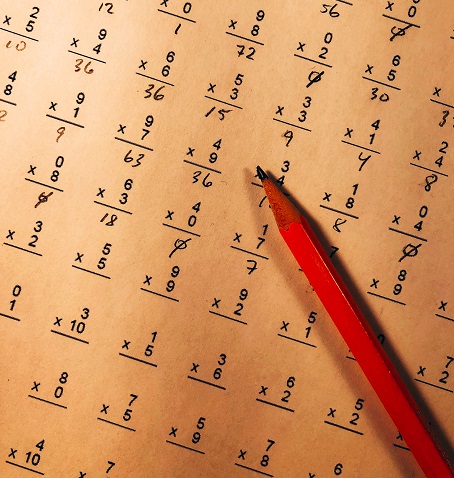 56 × 0
0
12 × 0 9 0 6
1 × 8 × 2 × 5
72 0 30
2 9 6 5 3 4 2
× 5 × 4 × 6 × 3 × 3 × 1 × 4
10 36 36 15 9 4 8
4 9 9 4 3 1 0
8 × 1 × 7 × 9 4 × 8 × 4
9 63 36 8 0
0 6 4 1 7 8
× 8 × 3 × 0 × 7 × 9
0 18 0 7
3 5 9 9 5 0 7
× 2 × 5 × 9 × 2 × 1 × 2
0 3 1 3 6 5
1 × 10 × 5 × 6 × 2 × 2
8 7 5 7 6
× 0 × 5 × 9 × 8
4 7
× 10